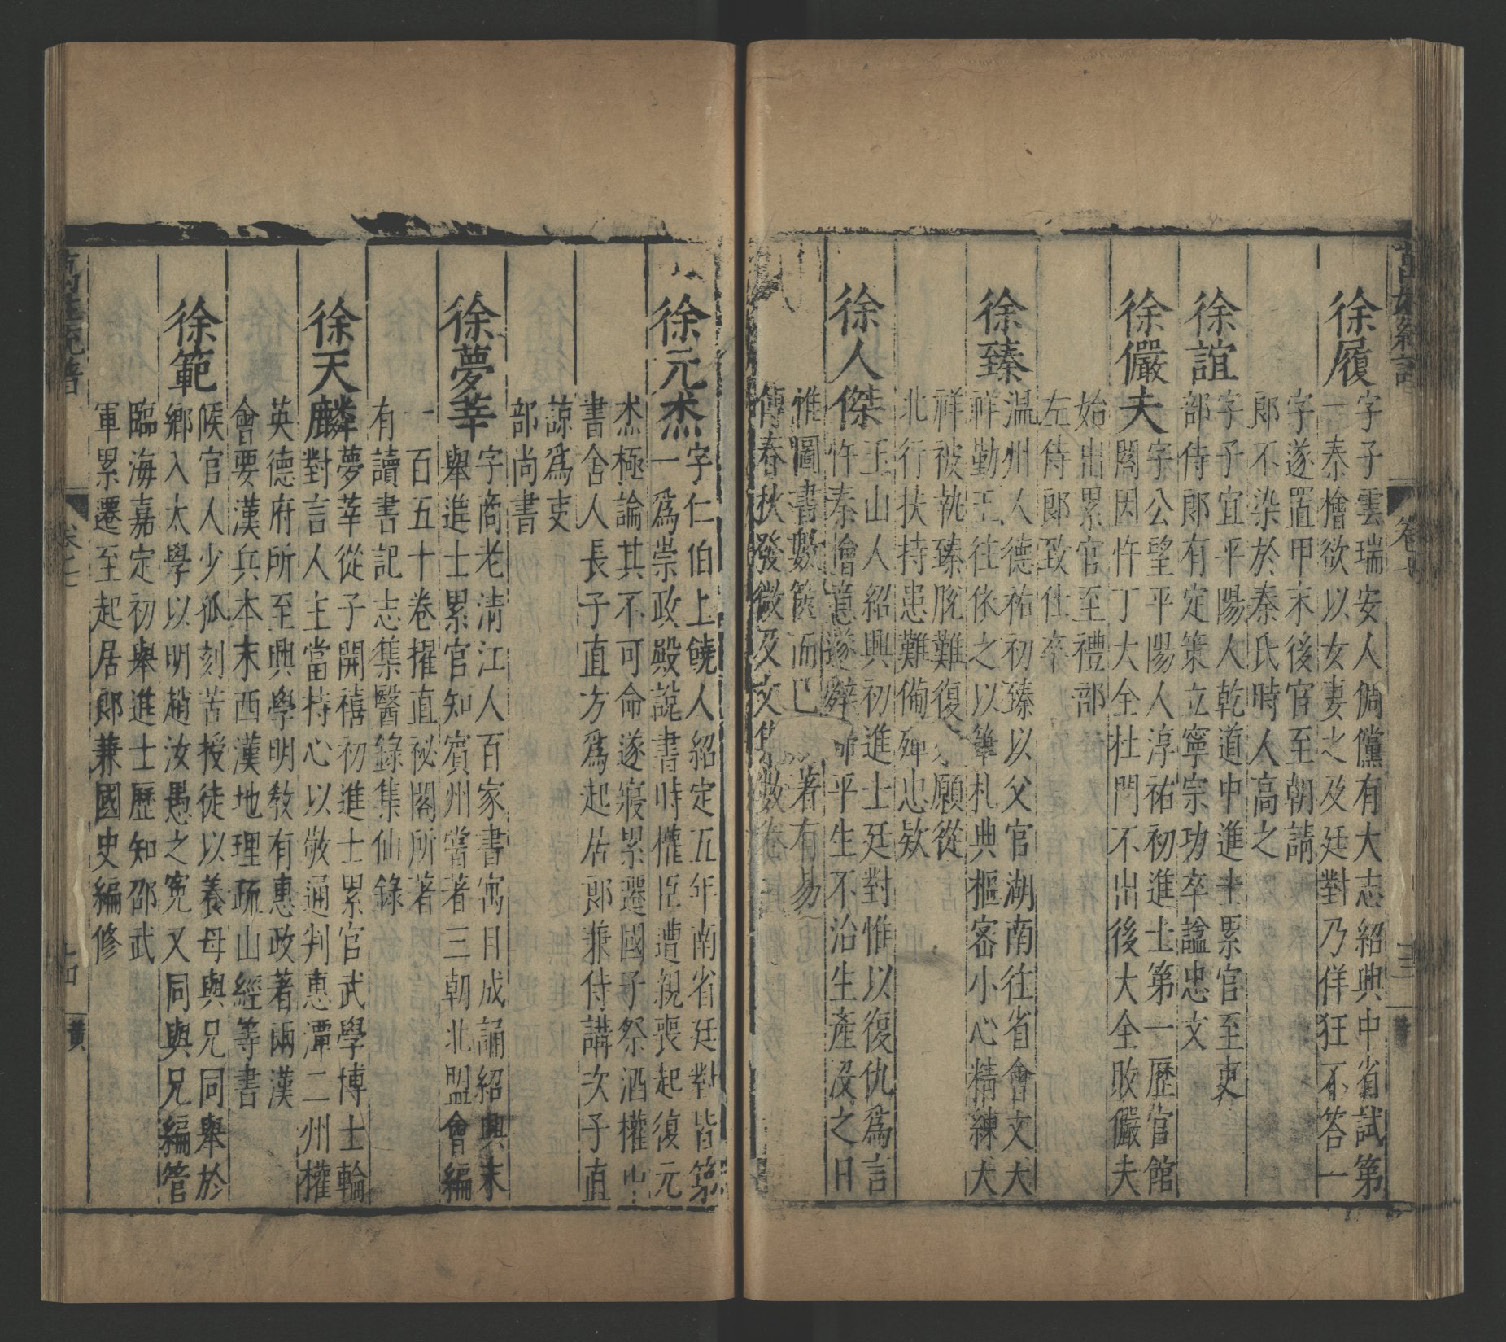 徐履
字子雲瑞安人倜儻有大志紹興中省試第
一秦檜欲以女妻之及廷對乃佯狂不答一
字遂置甲末後官至朝請
郎不染於秦氏時人高之
徐誼
字子宜平陽人乾道中進士累官至吏
部侍郎有定策立寧宗功卒諡忠文
徐儼夫
字公望平陽人淳祐初進士第一歷官館
閣因忤丁大全杜門不出後大全敗儼夫
始出累官至禮部
左侍郎致仕卒
徐臻
溫州人德祐初臻以父官湖南往省會文天
祥勤王往依之以筆札典樞密小心精練天
祥被執臻脫難復願從
北行扶持患難備殫忠欵
徐人傑
玉山人紹興初進士廷對惟以復仇為言
忤秦檜意遂辭 平生不治生產沒之日
惟圖書數篋而已 著有易
傳春秋發微及文集數卷
徐元杰
字仁伯上饒人紹定五年南省廷對皆第
一為崇政殿說書時權臣遭親喪起復元
杰極論其不可命遂寢累遷國子祭酒權中
書舍人長子直方為起居郎兼侍講次子直
諒為吏
部尚書
徐夢莘
字商老清江人百家書寓目成誦紹興末
舉進士累官知賓州嘗著三朝北盟會編
一百五十卷擢直祕閣所著
有讀書記志集醫錄集仙錄
徐天麟
夢莘從子開禧初進士累官武學博士輪
對言人主當持心以敬通判惠潭二州權
英德府所至興學明教有惠政著兩漢
會要漢兵本末西漢地理疏山經等書
徐範
候官人少孤刻苦授徒以養母與兄同舉於
鄉入太學以明趙汝愚之冤又同與兄編管
臨海嘉定初舉進士歷知邵武
軍累遷至起居郎兼國史編修
卷之七
十四